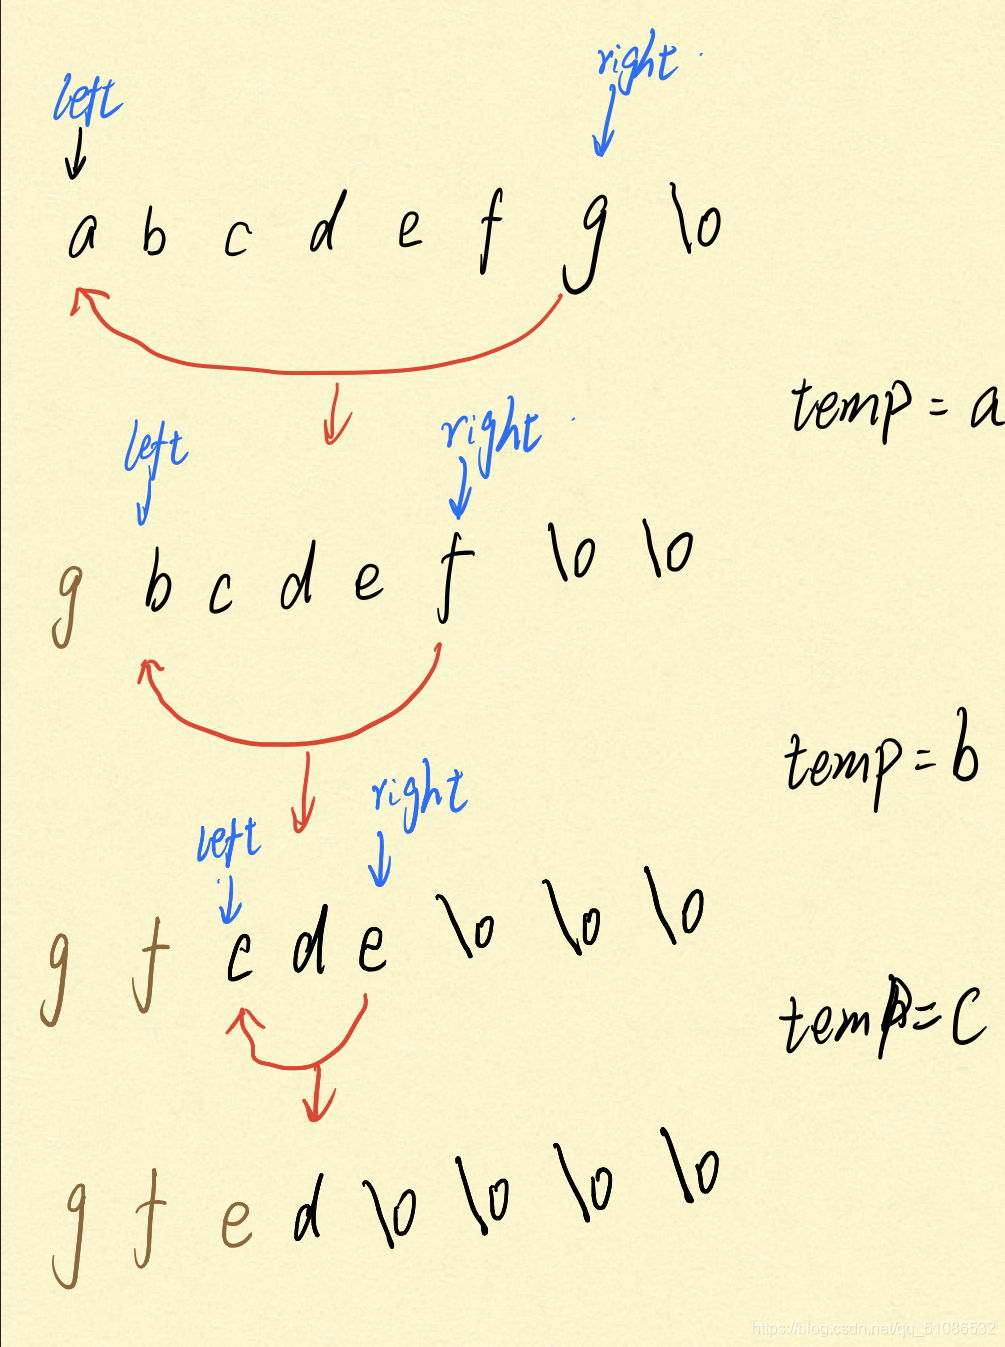 left right
a b c d e f g \0
temp = a
left right
g b c d e f \0 \0
temp = b
left right
g f c d e \0 \0 \0
temp = c
g f e d \0 \0 \0 \0
https://blog.csdn.net/qq_51086532